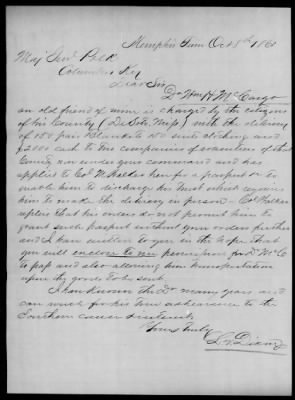 Memphis Tenn Oct 8th 1861
Maj Genl Polk
Columbus Ky
Dear Sir
Dr Wm H McCargo
an old friend of mine is charged by the citizens
of his County (De Soto, Miss) with the delivery
of 150 pair Blankets 150 suits clothing and
$2000 cash to two companies of volunteers of that
County now under your command and has
applied to Col M Walker here for a pasport &c to
enable him to discharge his trust which requires
him to make the delivery in person — Col Walker
replies that his orders do not permit him to
grant such pasport without your orders further
and I have written to you in the hope that
you will enclose to me permission for Dr McC
to pass and also allowing him transportation
upon the goods to be sent.
I have known the Dr many years and
can vouch for his true adherence to the
Southern cause &
Yours truly